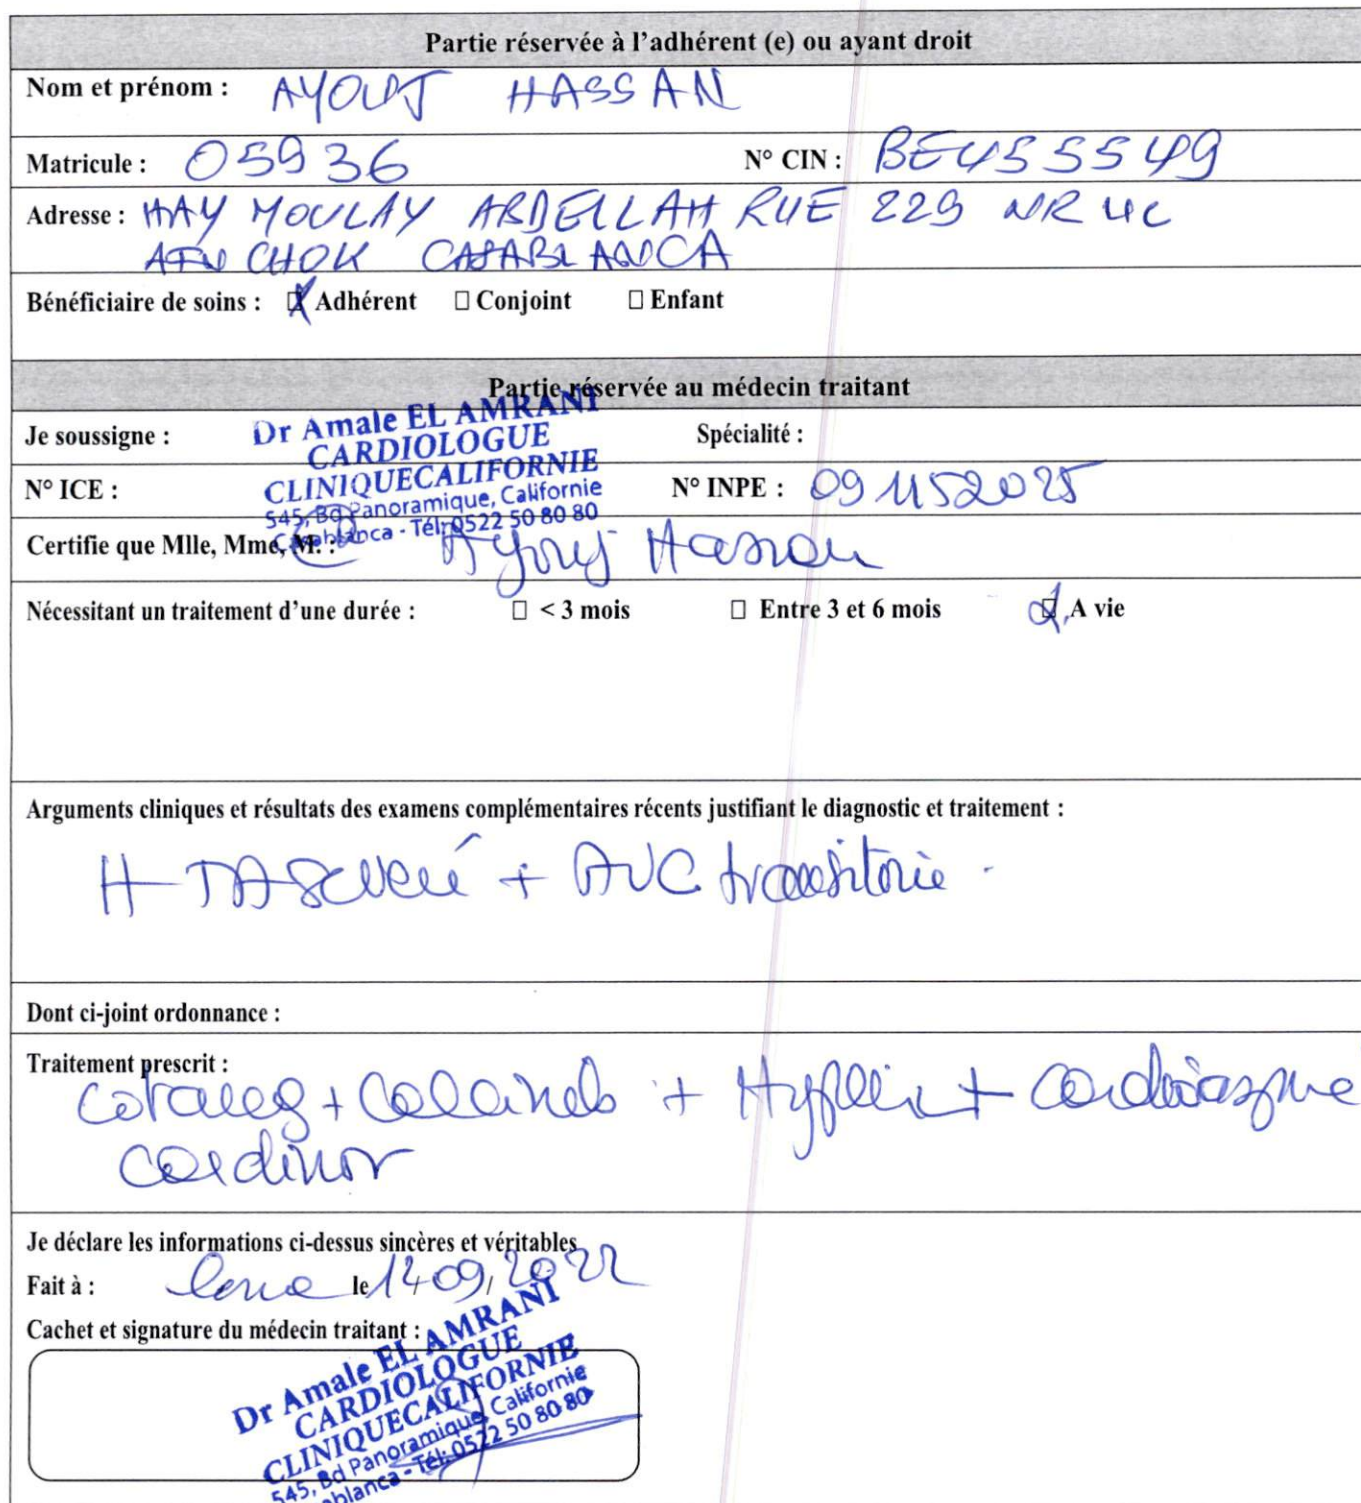 Partie réservée à l'adhérent (e) ou ayant droit
Nom et prénom : AYOUJ HASSAN
Matricule : 05936 N° CIN : BE455549
Adresse : HAY MOULAY ABDELLAH RUE 229 NR 4C
AIN CHOK CASABLANCA
Bénéficiaire de soins : ☒ Adhérent □ Conjoint □ Enfant
Partie réservée au médecin traitant
Dr Amale EL AMRANI
CARDIOLOGUE
CLINIQUECALIFORNIE
545, Bd Panoramique, Californie
Casablanca - Tél: 0522 50 80 80
Je soussigne : Spécialité :
N° ICE : N° INPE : 091152025
Certifie que Mlle, Mme, M. : Ayouj Hassan
Nécessitant un traitement d'une durée : □ < 3 mois □ Entre 3 et 6 mois ☒ A vie
Arguments cliniques et résultats des examens complémentaires récents justifiant le diagnostic et traitement :
HTA + AVC transitoire.
Dont ci-joint ordonnance :
Traitement prescrit :
+ + +
Je déclare les informations ci-dessus sincères et véritables
Fait à : Casa le 09/2022
Cachet et signature du médecin traitant :
Dr Amale EL AMRANI
CARDIOLOGUE
CLINIQUECALIFORNIE
545, Bd Panoramique, Californie
ablanca - Tél: 0522 50 80 80